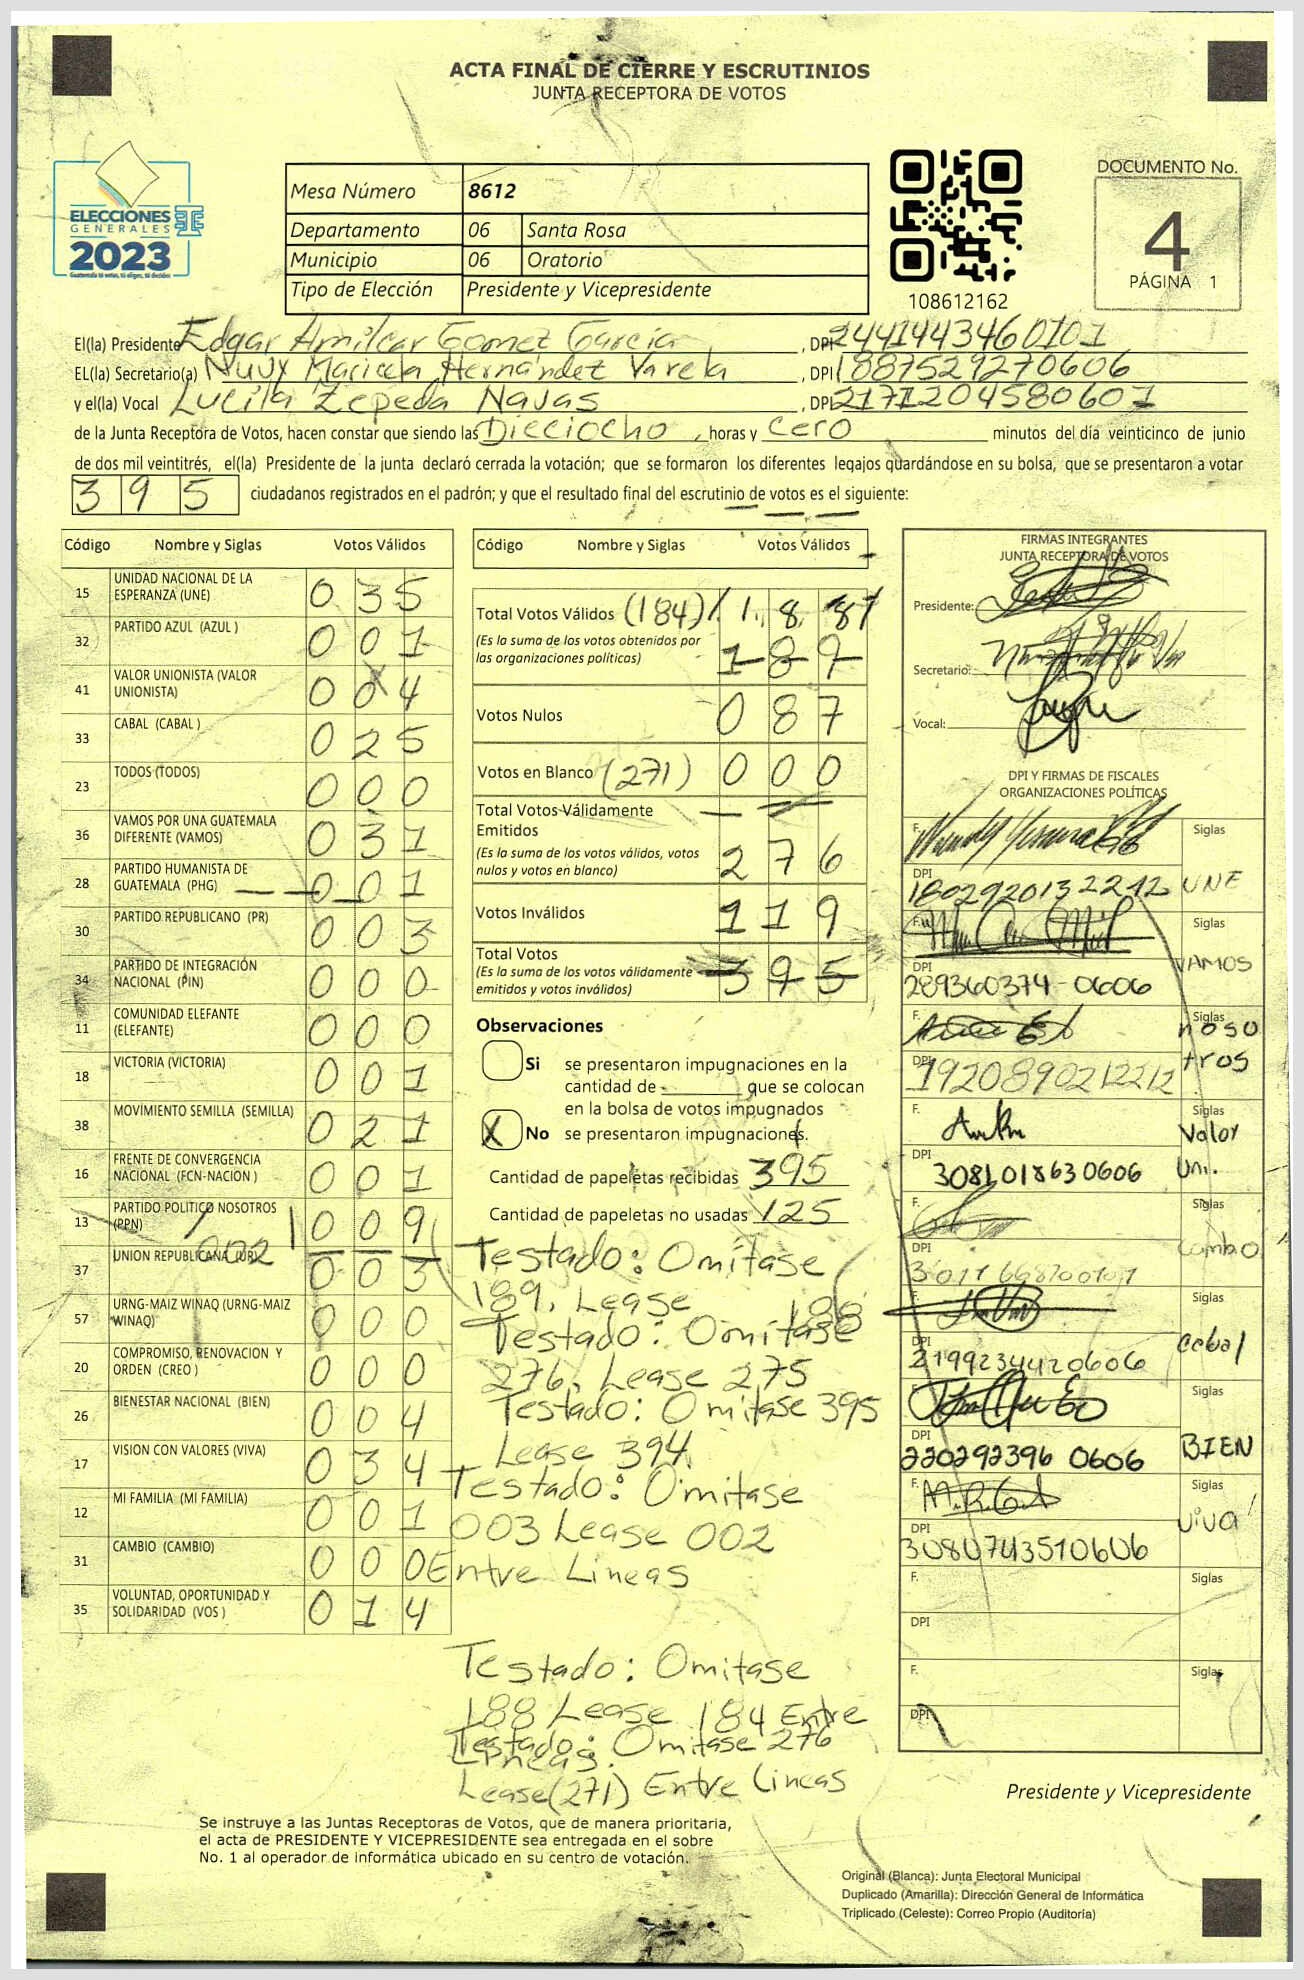 ACTA FINAL DE CIERRE Y ESCRUTINIOS
JUNTA RECEPTORA DE VOTOS
ELECCIONES
GENERALES
2023
Mesa Número 8612
Departamento 06 Santa Rosa
Municipio 06 Oratorio
Tipo de Elección Presidente y Vicepresidente
108612162
DOCUMENTO No.
4
PÁGINA 1
El(la) Presidente Edgar Amilcar Gomez Garcia, DPI 2441443460101
EL(la) Secretario(a) Maricela Hernández Varela, DPI 1887529270606
y el(la) Vocal Lucila Zepeda Navas, DPI 2171204580601
de la Junta Receptora de Votos, hacen constar que siendo las Dieciocho, horas y cero minutos del día veinticinco de junio
de dos mil veintitrés, el(la) Presidente de la junta declaró cerrada la votación; que se formaron los diferentes legajos quardándose en su bolsa, que se presentaron a votar
395 ciudadanos registrados en el padrón; y que el resultado final del escrutinio de votos es el siguiente:
Código Nombre y Siglas Votos Válidos
15 UNIDAD NACIONAL DE LA ESPERANZA (UNE) 035
32 PARTIDO AZUL (AZUL ) 001
41 VALOR UNIONISTA (VALOR UNIONISTA) 004
33 CABAL (CABAL ) 025
23 TODOS (TODOS) 000
36 VAMOS POR UNA GUATEMALA DIFERENTE (VAMOS) 031
28 PARTIDO HUMANISTA DE GUATEMALA (PHG) 001
30 PARTIDO REPUBLICANO (PR) 003
34 PARTIDO DE INTEGRACIÓN NACIONAL (PIN) 000
11 COMUNIDAD ELEFANTE (ELEFANTE) 000
18 VICTORIA (VICTORIA) 001
38 MOVIMIENTO SEMILLA (SEMILLA) 021
16 FRENTE DE CONVERGENCIA NACIONAL (FCN-NACION ) 001
13 PARTIDO POLITICO NOSOTROS (PPN) 009
002
37 UNION REPUBLICANA (UR) 003
57 URNG-MAIZ WINAQ (URNG-MAIZ WINAQ) 000
20 COMPROMISO, RENOVACION Y ORDEN (CREO ) 000
26 BIENESTAR NACIONAL (BIEN) 004
17 VISION CON VALORES (VIVA) 034
12 MI FAMILIA (MI FAMILIA) 001
31 CAMBIO (CAMBIO) 000
35 VOLUNTAD, OPORTUNIDAD Y SOLIDARIDAD (VOS ) 014
Código Nombre y Siglas Votos Válidos
Total Votos Válidos (184)
(Es la suma de los votos obtenidos por
las organizaciones políticas) 189
Votos Nulos 087
Votos en Blanco (271) 000
Total Votos Válidamente
Emitidos
(Es la suma de los votos válidos, votos
nulos y votos en blanco) 276
Votos Inválidos 119
Total Votos
(Es la suma de los votos válidamente
emitidos y votos inválidos) 395
Observaciones
Si se presentaron impugnaciones en la
cantidad de que se colocan
en la bolsa de votos impugnados
X No se presentaron impugnaciones.
Cantidad de papeletas recibidas 395
Cantidad de papeletas no usadas 125
Testado: Omitase
189, Lease 188
Testado: Omitase
276, Lease 275
Testado: Omitase 395
Lease 394
Testado: Omitase
003 Lease 002
Entre Lineas
Testado: Omitase
188 Lease 184 Entre
Lineas.
Testado: Omitase 276
Lease (271) Entre lineas
FIRMAS INTEGRANTES
JUNTA RECEPTORA DE VOTOS
Presidente:
Secretario:
Vocal:
DPI Y FIRMAS DE FISCALES
ORGANIZACIONES POLÍTICAS
F. Siglas
DPI 1802920132212 UNE
F. Siglas
DPI 289360374-0606 VAMOS
F. Siglas nosotros
DPI 1920890212212
F. Siglas Valor Uni.
DPI 3081018630606
F. Siglas
DPI cambio
F. Siglas
DPI 2199234420606 cabal
F. Siglas
DPI 220292396 0606 BIEN
F. Siglas
DPI 3080743510606 viva
F. Siglas
DPI
F. Siglas
DPI
Presidente y Vicepresidente
Se instruye a las Juntas Receptoras de Votos, que de manera prioritaria,
el acta de PRESIDENTE Y VICEPRESIDENTE sea entregada en el sobre
No. 1 al operador de informática ubicado en su centro de votación.
Original (Blanca): Junta Electoral Municipal
Duplicado (Amarilla): Dirección General de Informática
Triplicado (Celeste): Correo Propio (Auditoría)